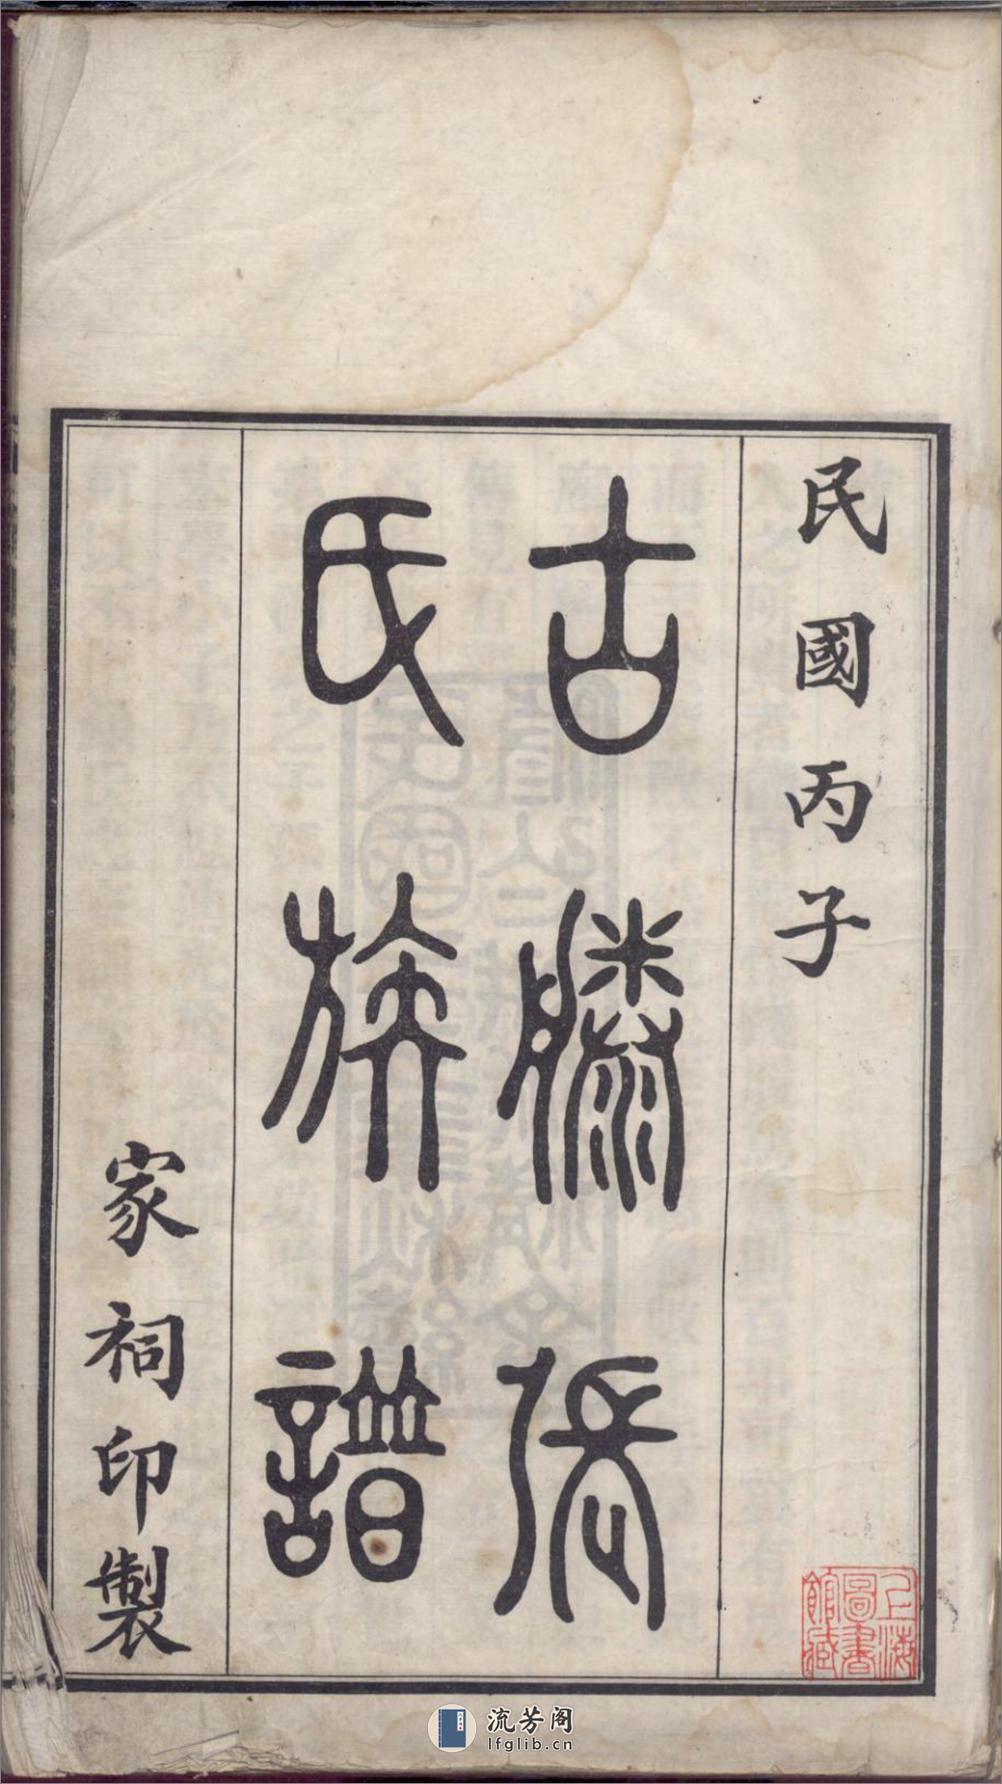 民國丙子
古滕張
氏族譜
家祠印製
上海
圖書
館藏
流芳阁
lfglib.cn